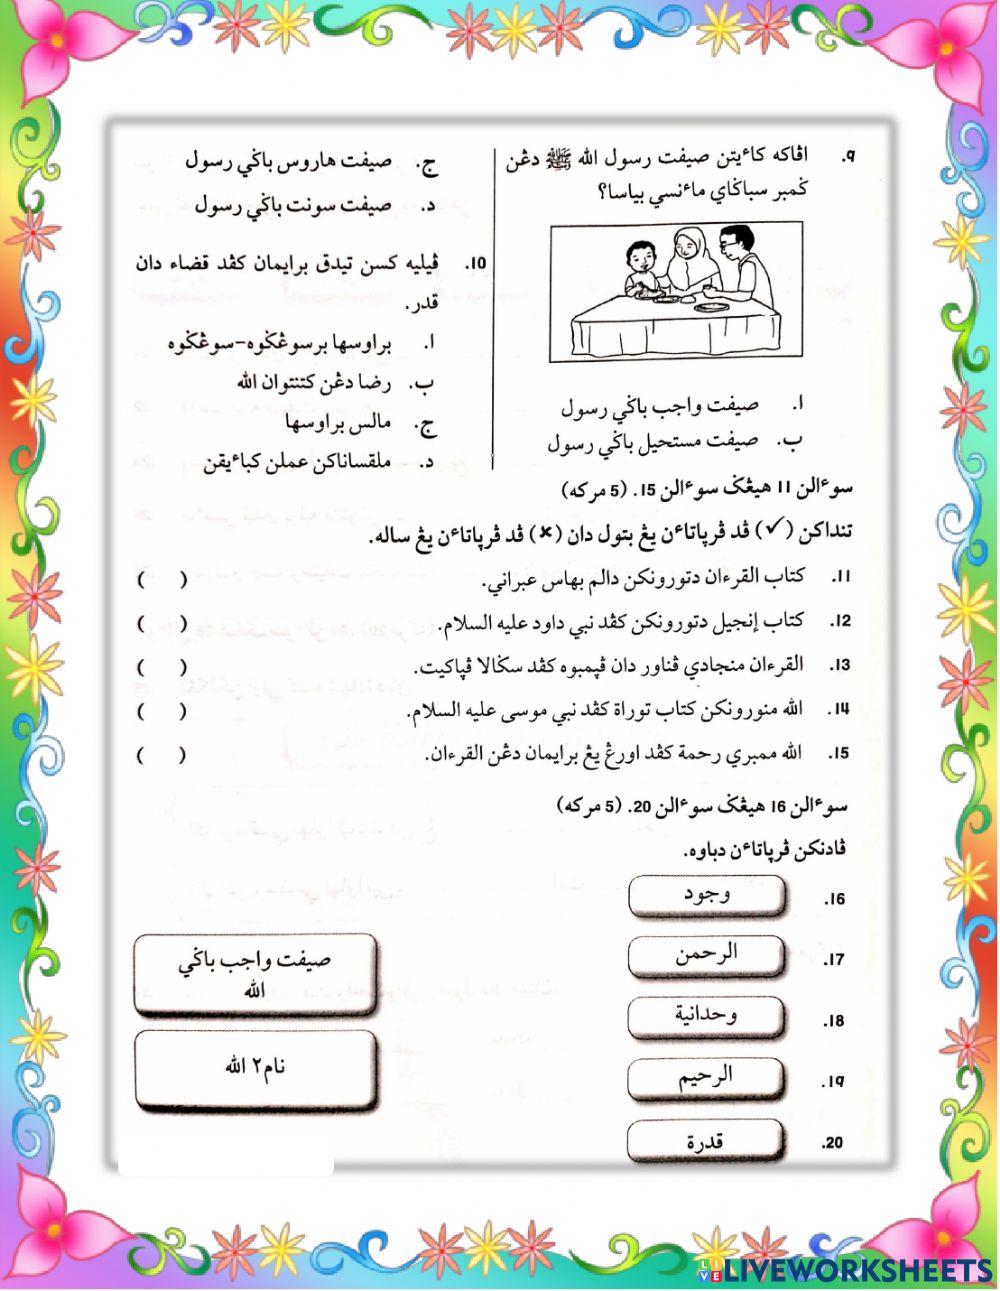 ٩. اڤاكه كاءيتن صيفت رسول الله ﷺ دڠن
ݢمبر سباݢاي ماءنسي بياسا؟
ا. صيفت واجب باݢي رسول
ب. صيفت مستحيل باݢي رسول
ج. صيفت هاروس باݢي رسول
د. صيفت سونت باݢي رسول
10. ڤيليه كسن تيدق برايمان كڤد قضاء دان
قدر.
ا. براوسها برسوڠݢوه-سوڠݢوه
ب. رضا دڠن كتنتوان الله
ج. مالس براوسها
د. ملقساناكن عملن كباءيقن
سوءالن 11 هيڠݢ سوءالن 15. (5 مركه)
تنداكن (✓) ڤد ڤرڽاتاءن يڠ بتول دان (✗) ڤد ڤرڽاتاءن يڠ ساله.
11. كتاب القرءان دتورونكن دالم بهاس عبراني. ( )
12. كتاب إنجيل دتورونكن كڤد نبي داود عليه السلام. ( )
13. القرءان منجادي ڤناور دان ڤڽمبوه كڤد سݢالا ڤڽاكيت. ( )
14. الله منورونكن كتاب توراة كڤد نبي موسى عليه السلام. ( )
15. الله ممبري رحمة كڤد اورڠ يڠ برايمان دڠن القرءان. ( )
سوءالن 16 هيڠݢ سوءالن 20. (5 مركه)
ڤادنكن ڤرڽاتاءن دباوه.
16. وجود
17. الرحمن
18. وحدانية
19. الرحيم
20. قدرة
صيفت واجب باݢي
الله
نام٢ الله
LIVEWORKSHEETS